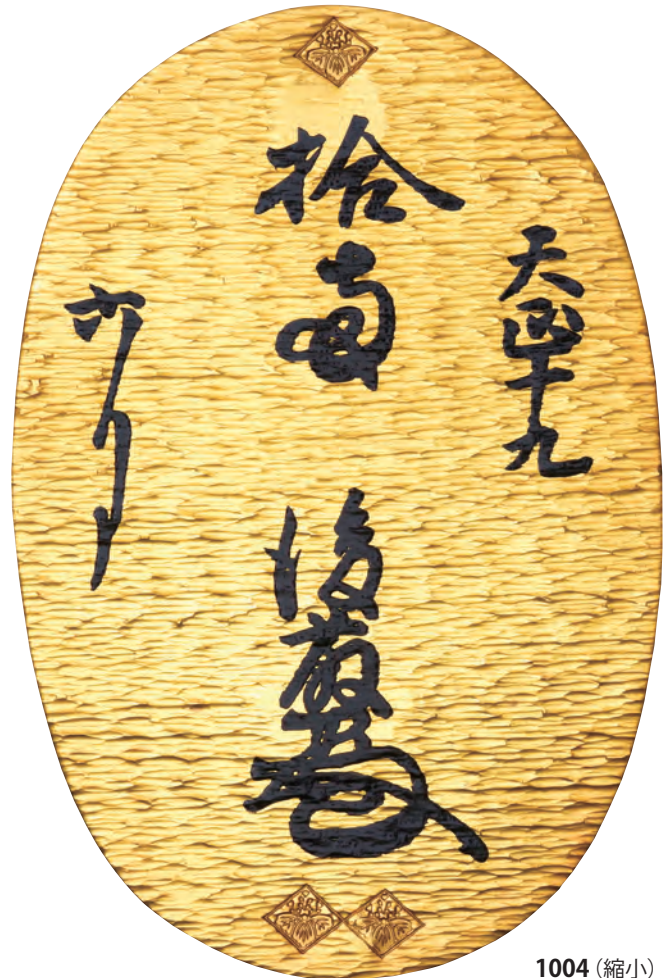 天正十九
拾両 後藤
六月
1004（縮小）